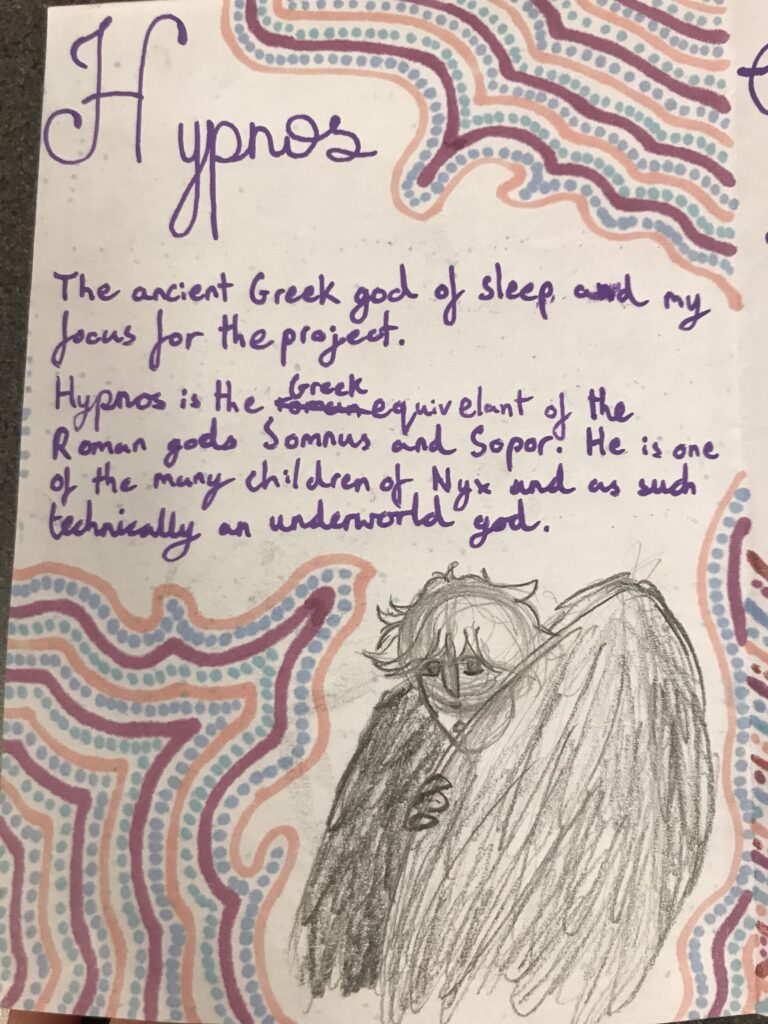 Hypnos
The ancient Greek god of sleep and my
focus for the project.
Hypnos is the Greek equivelant of the
Roman gods Somnus and Sopor. He is one
of the many children of Nyx and as such
technically an underworld god.